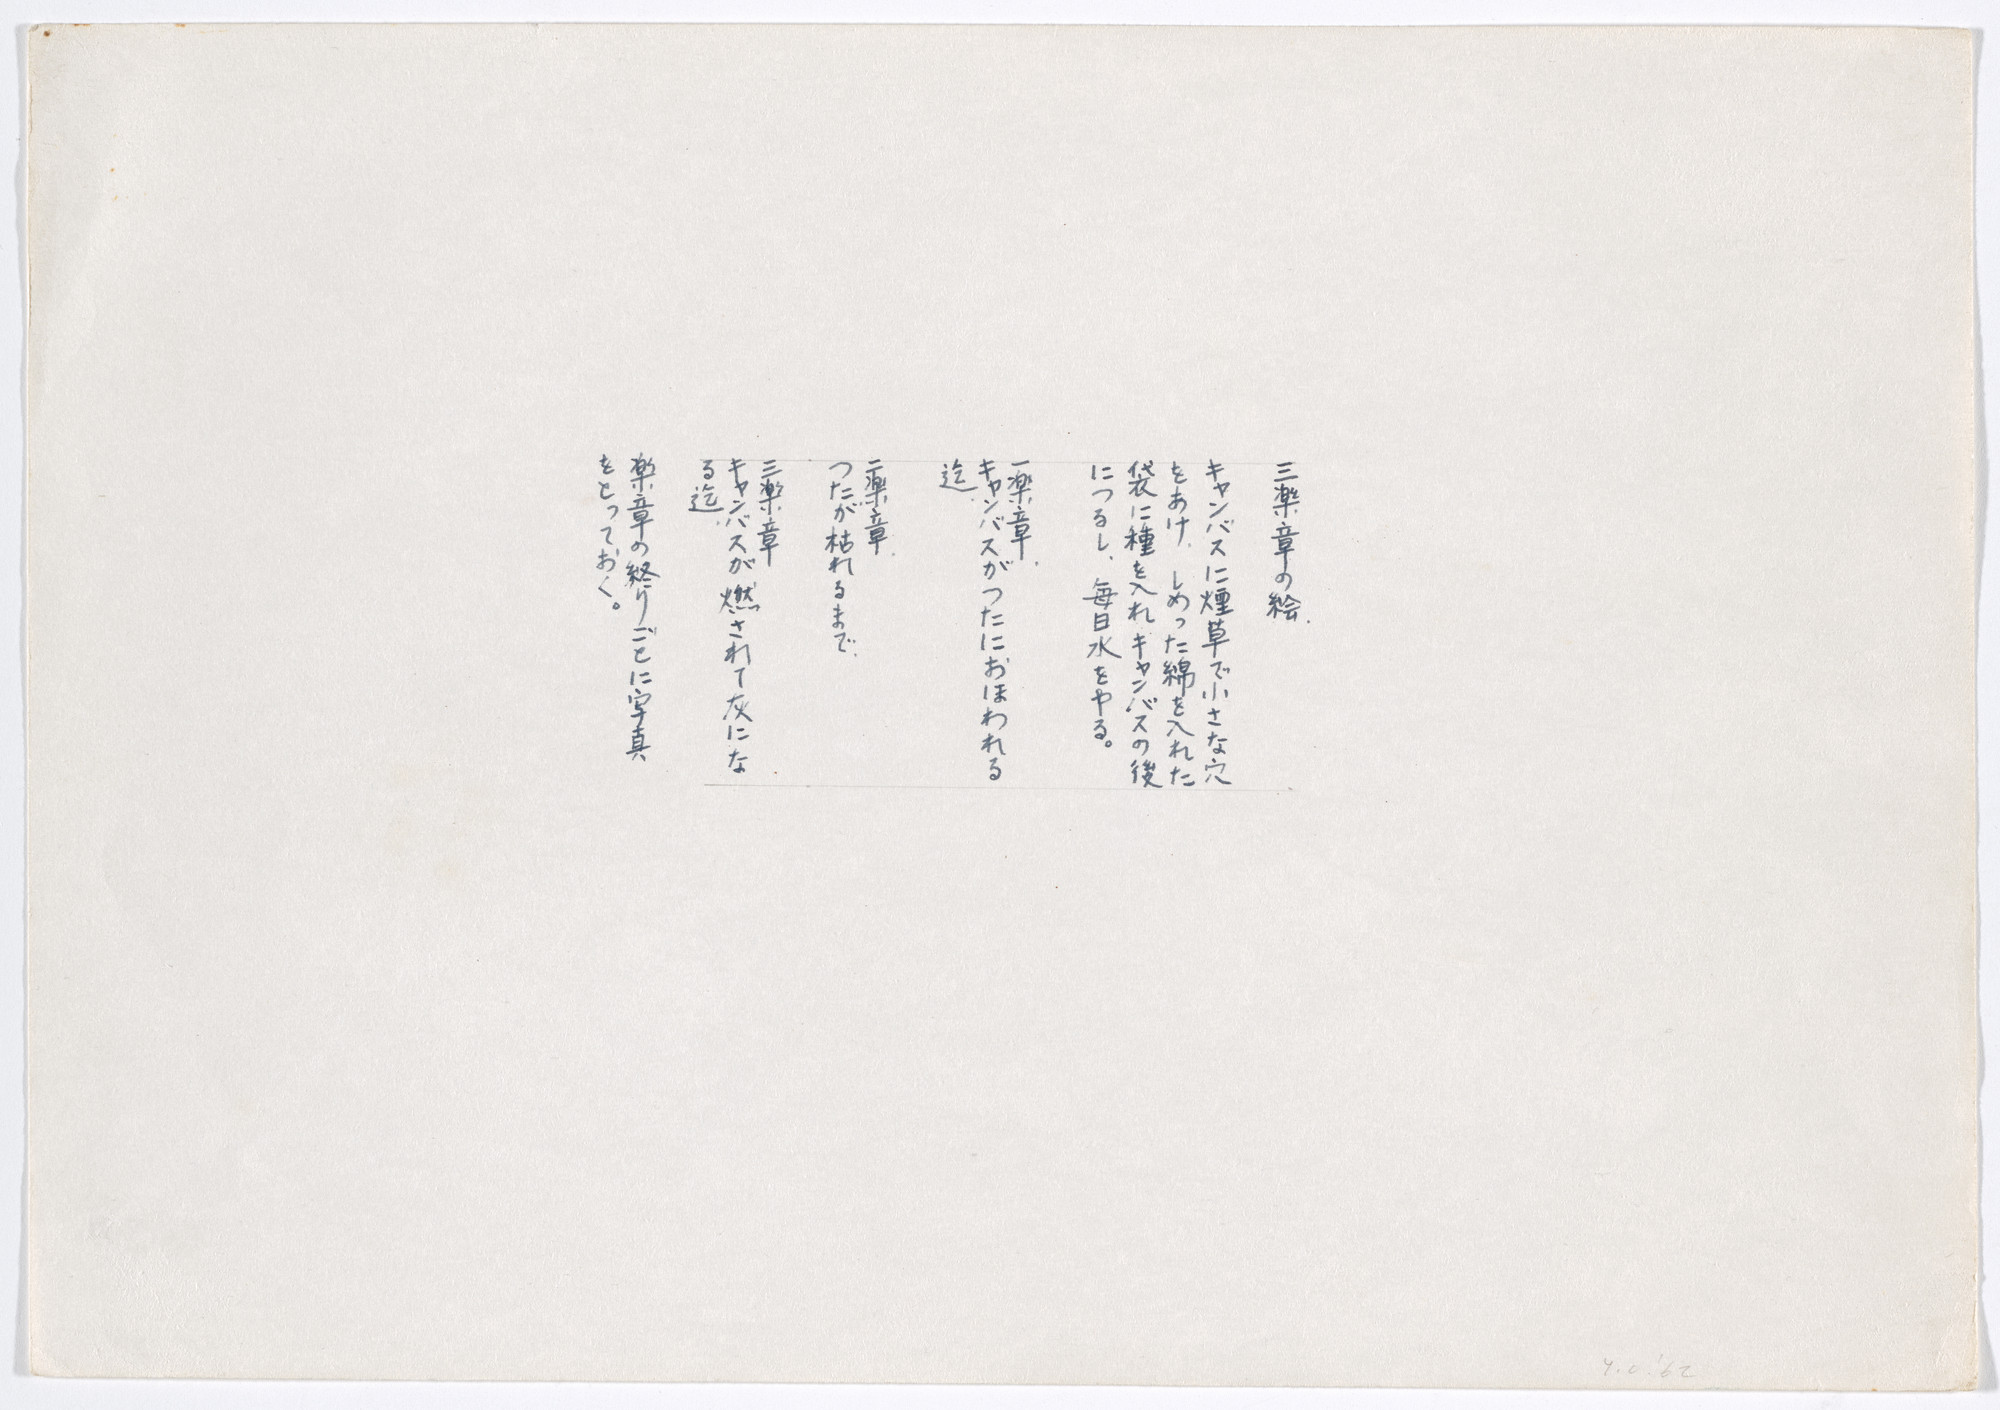 三楽章の絵.
キャンバスに煙草で小さな穴
をあけ、しめった綿を入れた
袋に種を入れキャンバスの後
につるし、毎日水をやる。
一楽章.
キャンバスがつたにおほわれる
迄.
二楽章.
つたが枯れるまで.
三楽章.
キャンバスが燃されて灰にな
る迄.
楽章の終りごとに写真
をとっておく。
y.o. '62